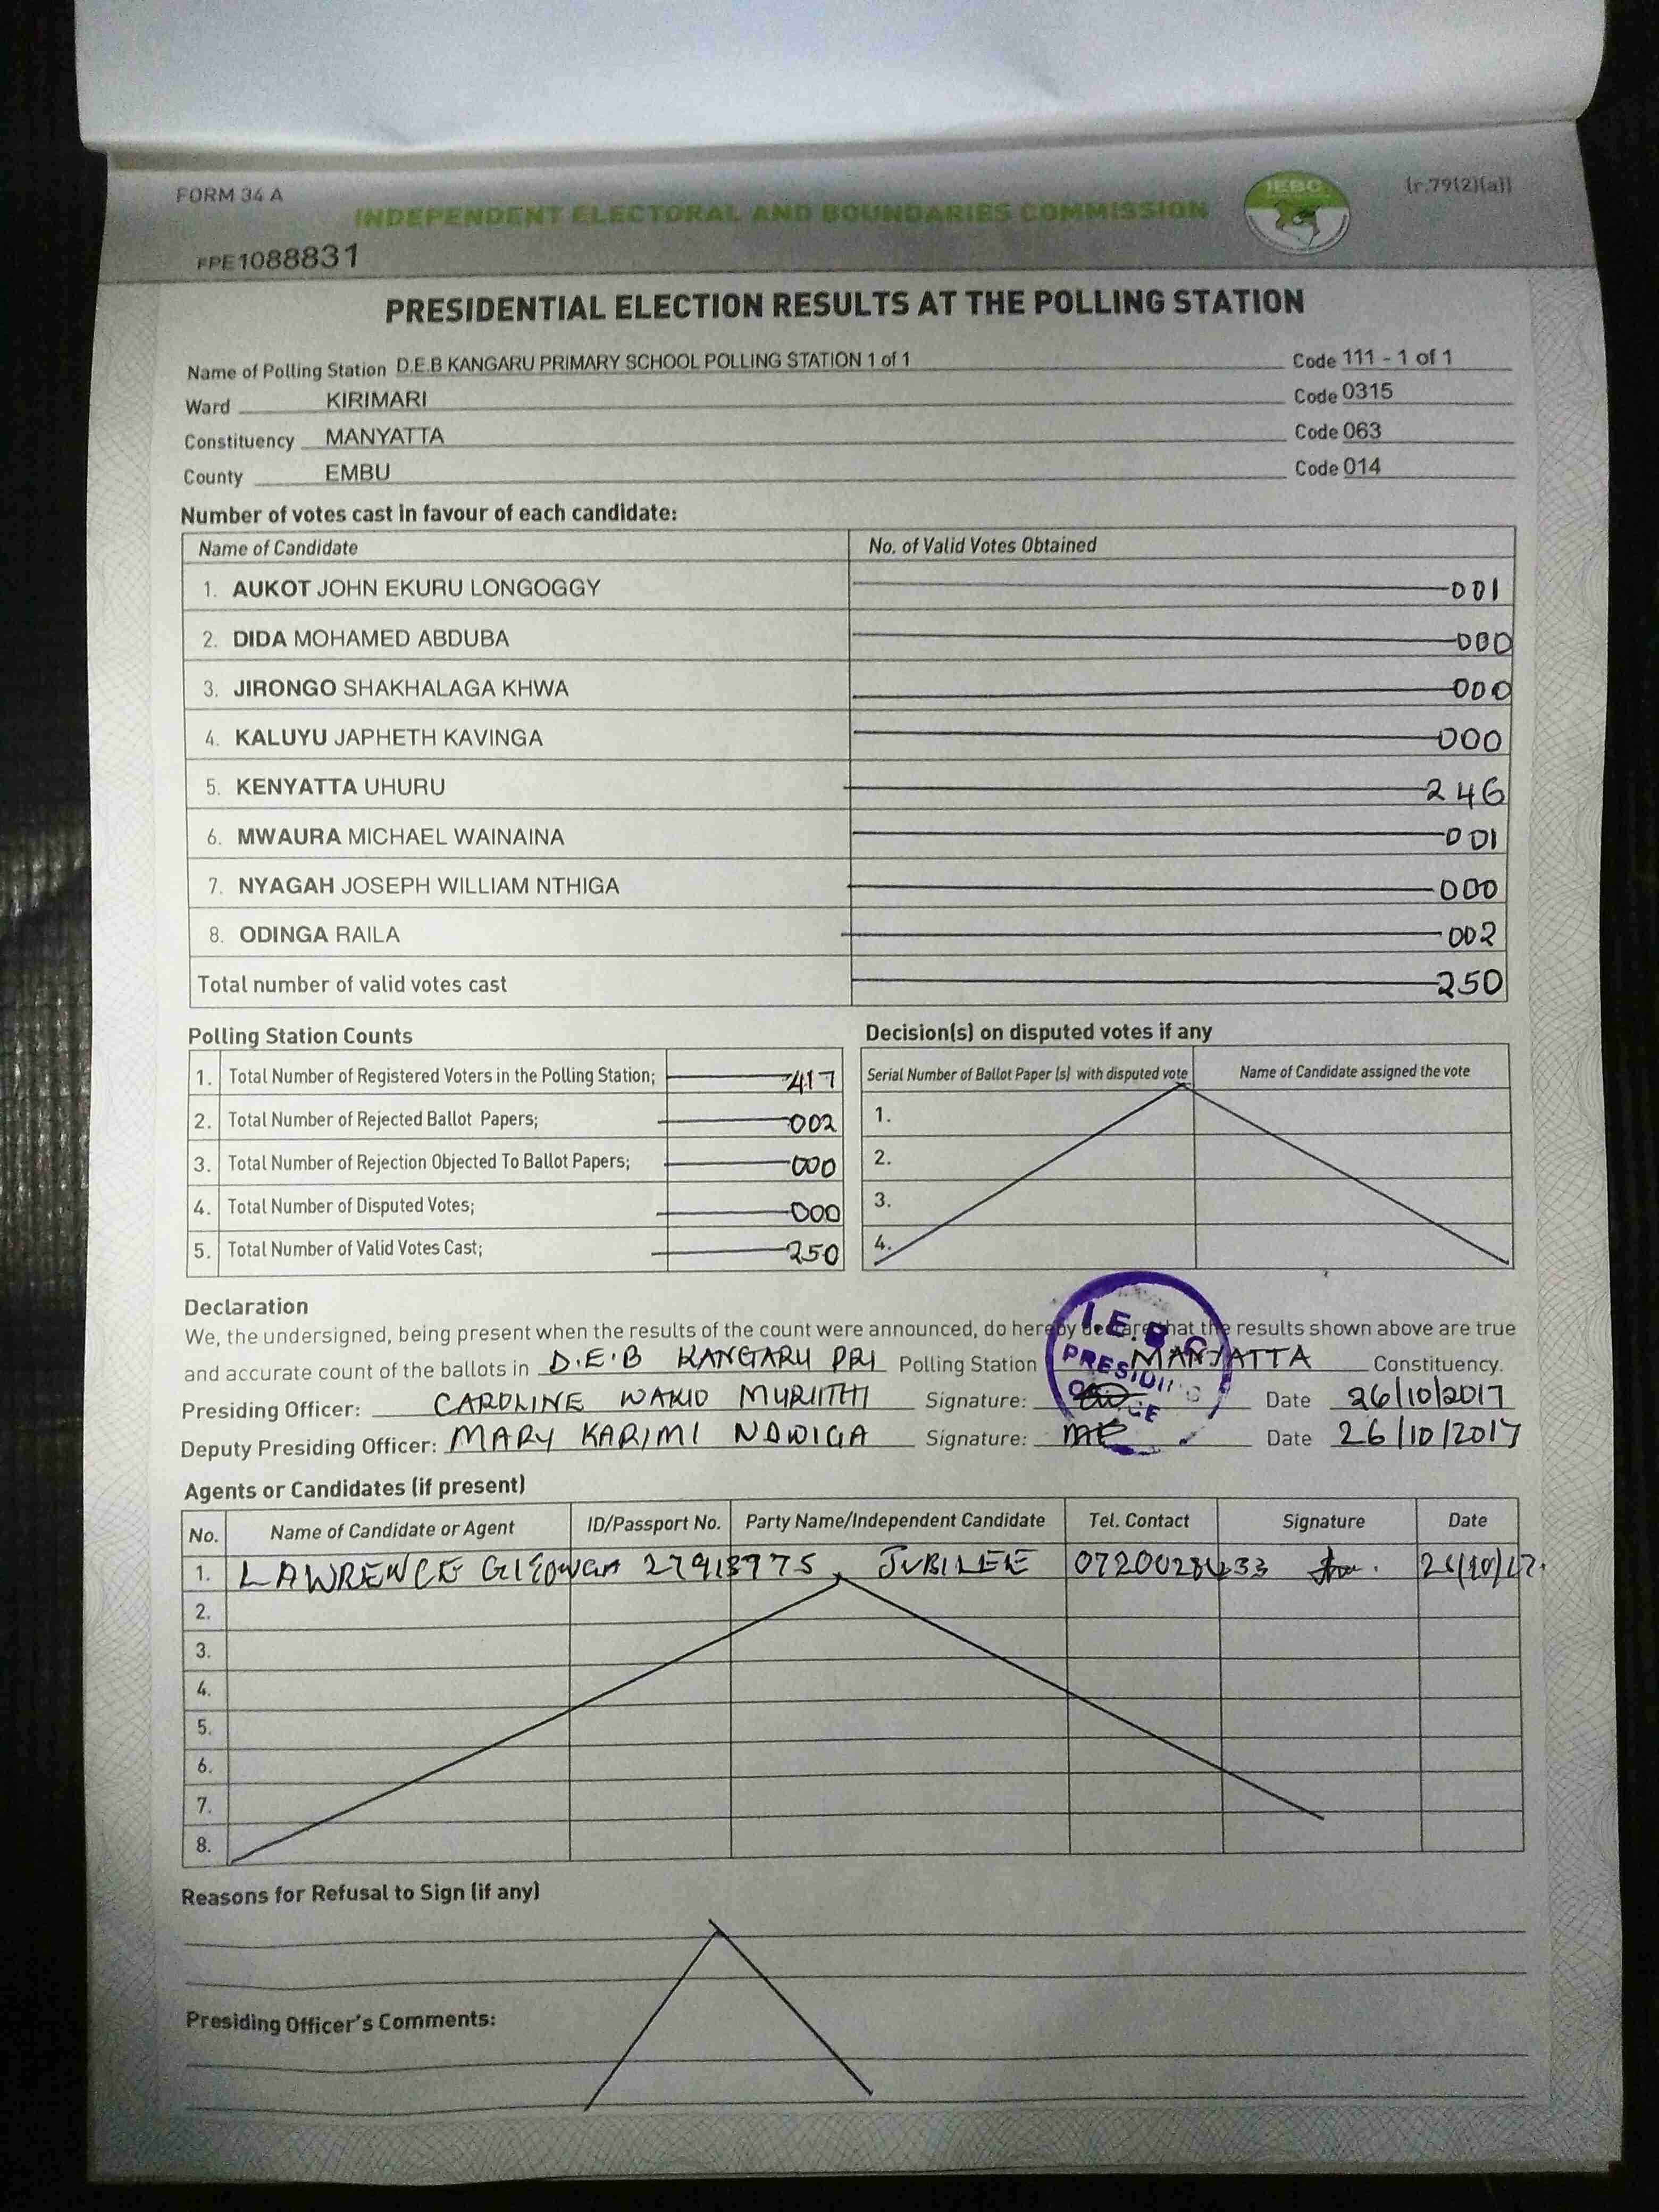 FORM 34 A
IEBC
(r.79(2)(a))
INDEPENDENT ELECTORAL AND BOUNDARIES COMMISSION
FPE1088831
PRESIDENTIAL ELECTION RESULTS AT THE POLLING STATION
Name of Polling Station D.E.B KANGARU PRIMARY SCHOOL POLLING STATION 1 of 1 Code 111 - 1 of 1
Ward KIRIMARI Code 0315
Constituency MANYATTA Code 063
County EMBU Code 014
Number of votes cast in favour of each candidate:
Name of Candidate No. of Valid Votes Obtained
1. AUKOT JOHN EKURU LONGOGGY 001
2. DIDA MOHAMED ABDUBA 000
3. JIRONGO SHAKHALAGA KHWA 000
4. KALUYU JAPHETH KAVINGA 000
5. KENYATTA UHURU 246
6. MWAURA MICHAEL WAINAINA 001
7. NYAGAH JOSEPH WILLIAM NTHIGA 000
8. ODINGA RAILA 002
Total number of valid votes cast 250
Polling Station Counts
1. Total Number of Registered Voters in the Polling Station; 417
2. Total Number of Rejected Ballot Papers; 002
3. Total Number of Rejection Objected To Ballot Papers; 000
4. Total Number of Disputed Votes; 000
5. Total Number of Valid Votes Cast; 250
Decision(s) on disputed votes if any
Serial Number of Ballot Paper (s) with disputed vote Name of Candidate assigned the vote
1.
2.
3.
4.
Declaration
We, the undersigned, being present when the results of the count were announced, do hereby declare that the results shown above are true
and accurate count of the ballots in D.E.B KANGARU PRI Polling Station MANYATTA Constituency.
I.E.B.C
PRESIDING
Presiding Officer: CAROLINE MURIITHI Signature: Date 26/10/2017
Deputy Presiding Officer: MARY KARIMI NDWIGA Signature: Date 26/10/2017
Agents or Candidates (if present)
No. Name of Candidate or Agent ID/Passport No. Party Name/Independent Candidate Tel. Contact Signature Date
1. LAWRENCE JUBILEE 26/10/17.
2.
3.
4.
5.
6.
7.
8.
Reasons for Refusal to Sign (if any)
Presiding Officer's Comments: